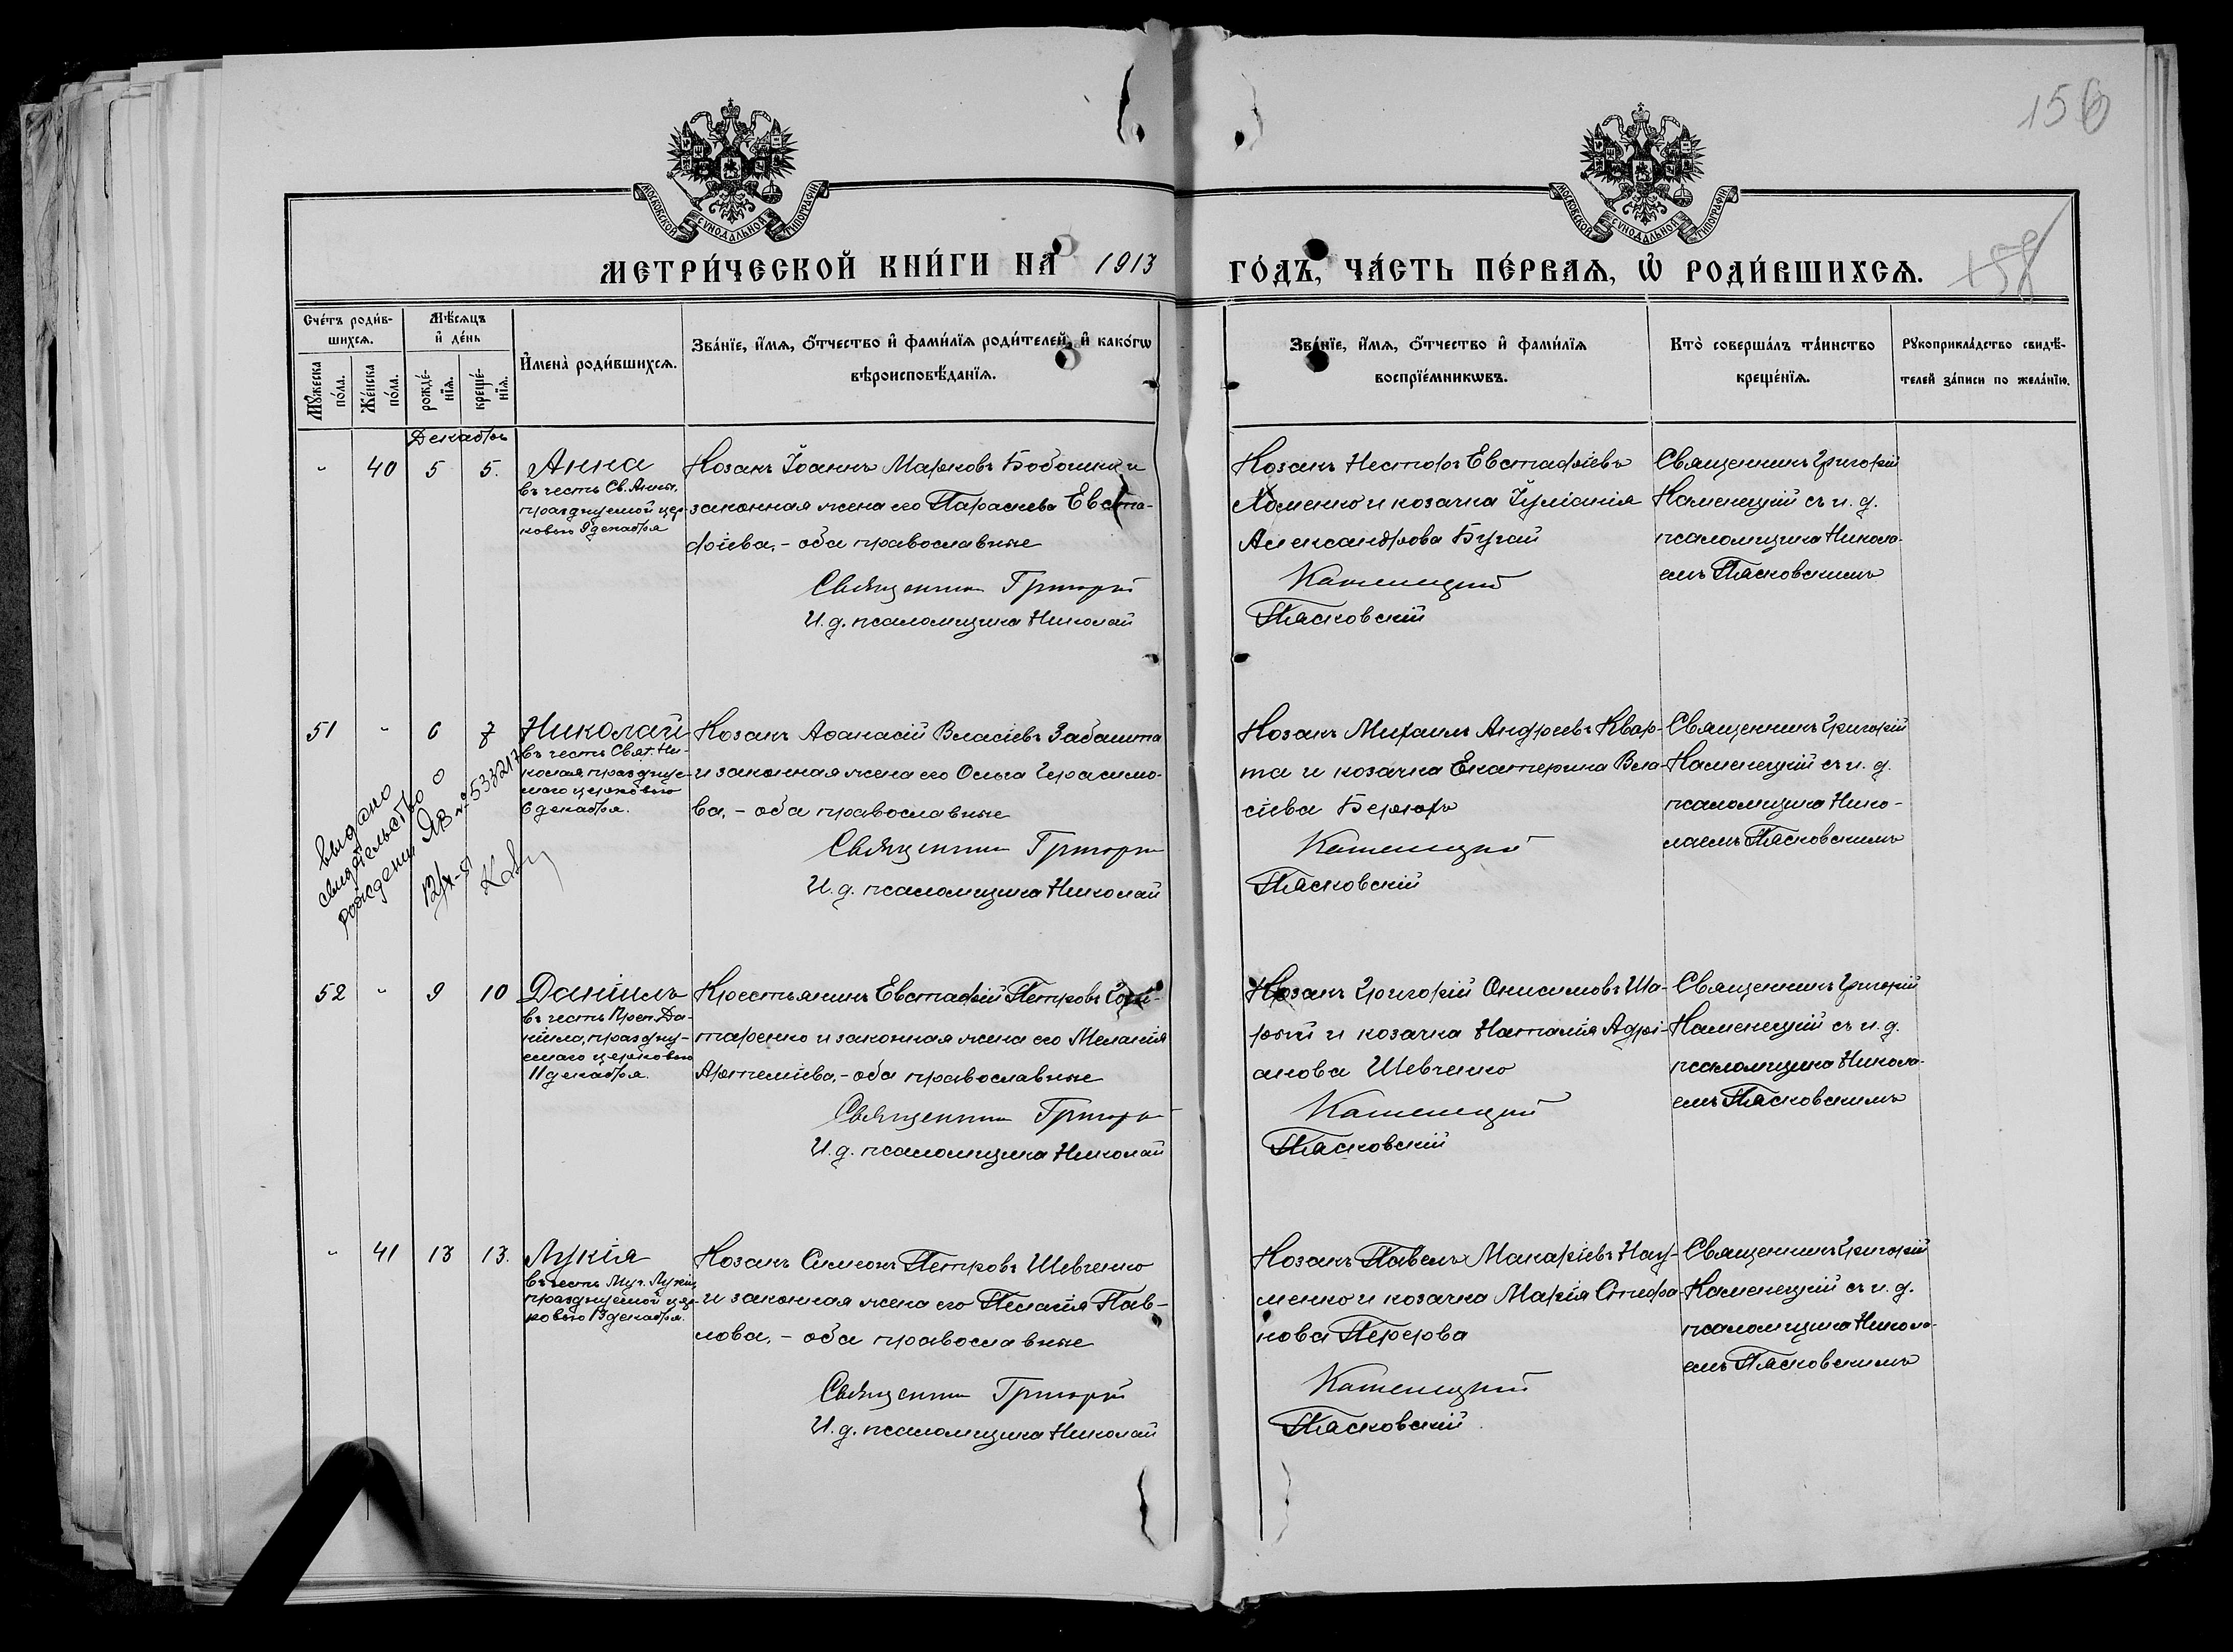 156
158
МОСКОВСКОЙ СѴНОДАЛЬНОЙ ТИПОГРАФІИ
МОСКОВСКОЙ СѴНОДАЛЬНОЙ ТИПОГРАФІИ
МЕТРИ́ЧЕСКОЙ КНИ́ГИ НА 1913
ГО́ДЪ, ЧА́СТЬ ПЕ́РВАѦ, Ѽ РОДИ́ВШИХСѦ.
Сче́тъ роди́в-
шихсѧ.
Мꙋ́жеска
по́ла.
Же́нска
по́ла.
Мѣ́сѧцъ
и҆ де́нь
рожде́-
нїѧ.
креще́-
нїѧ.
И҆мена̀ роди́вшихсѧ.
Зва́нїе, и҆́мѧ, ѻ҆́тчество и҆ фами́лїѧ роди́телей, и҆ како́гѡ
вѣроисповѣ́данїѧ.
Зва́нїе, и҆́мѧ, ѻ҆́тчество и҆ фами́лїѧ
воспрїе́мникѡвъ.
Кто̀ соверша́лъ та́инство
креще́нїѧ.
Рꙋкоприкла́дство свидѣ́-
телей за́писи по жела́нїю.
Декабрь
" 40 5 5.
Анна
въ честь Св. Анны,
празднуемой цер-
ковью 9 декабря
Козакъ Іоаннъ Марковъ и
законная жена его Параскева Евста-
фіева, - оба православные
Священникъ Григорій
И. д. псаломщика Николай
Козакъ Несторъ Евстафіевъ
Хоменко и козачка Іуліанія
Александрова Бугай
Каменецкій
Пясковскій
Священникъ Григорій
Каменецкій съ и. д.
псаломщика Никола-
емъ Пясковскимъ
51 " 6 7
Николай
въ честь Свят. Ни-
колая, празднуе-
маго церковью
6 декабря.
Козакъ Аѳанасій Власіевъ Забашта
и законная жена его Ольга Герасимо-
ва, - оба православные
Священникъ Григорій
И. д. псаломщика Николай
Козакъ Михаилъ Андреевъ Квар-
та и козачка Екатерина Вла-
сіева
Каменецкій
Пясковскій
Священникъ Григорій
Каменецкій съ и. д.
псаломщика Нико-
лаемъ Пясковскимъ
выдано
свидетельство о
рождении ЯВ № 533217
52 " 9 10
Даніилъ
въ честь Преп. Да-
ніила, праздну-
емаго церковью
11 декабря.
Крестьянинъ Евстафій Петровъ
таренко и законная жена его Меланія
Артеміева, - оба православные
Священникъ Григорій
И. д. псаломщика Николай
Козакъ Григорій Онисимовъ Ша-
рый и козачка Наталія Адрі-
анова Шевченко
Каменецкій
Пясковскій
Священникъ Григорій
Каменецкій съ и. д.
псаломщика Никола-
емъ Пясковскимъ
" 41 13 13.
Лукія
въ честь Муч. Лукіи,
празднуемой цер-
ковью 13 декабря.
Козакъ Симеонъ Петровъ Шевченко
и законная жена его Пелагія Пав-
лова, - оба православные
Священникъ Григорій
И. д. псаломщика Николай
Козакъ Павелъ Макаріевъ Нау-
менко и козачка Марія Стефа-
нова
Каменецкій
Пясковскій
Священникъ Григорій
Каменецкій съ и. д.
псаломщика Никола-
емъ Пясковскимъ